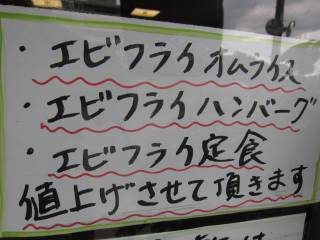 ・エビフライオムライス
・エビフライハンバーグ
・エビフライ定食
値上げさせて頂きます